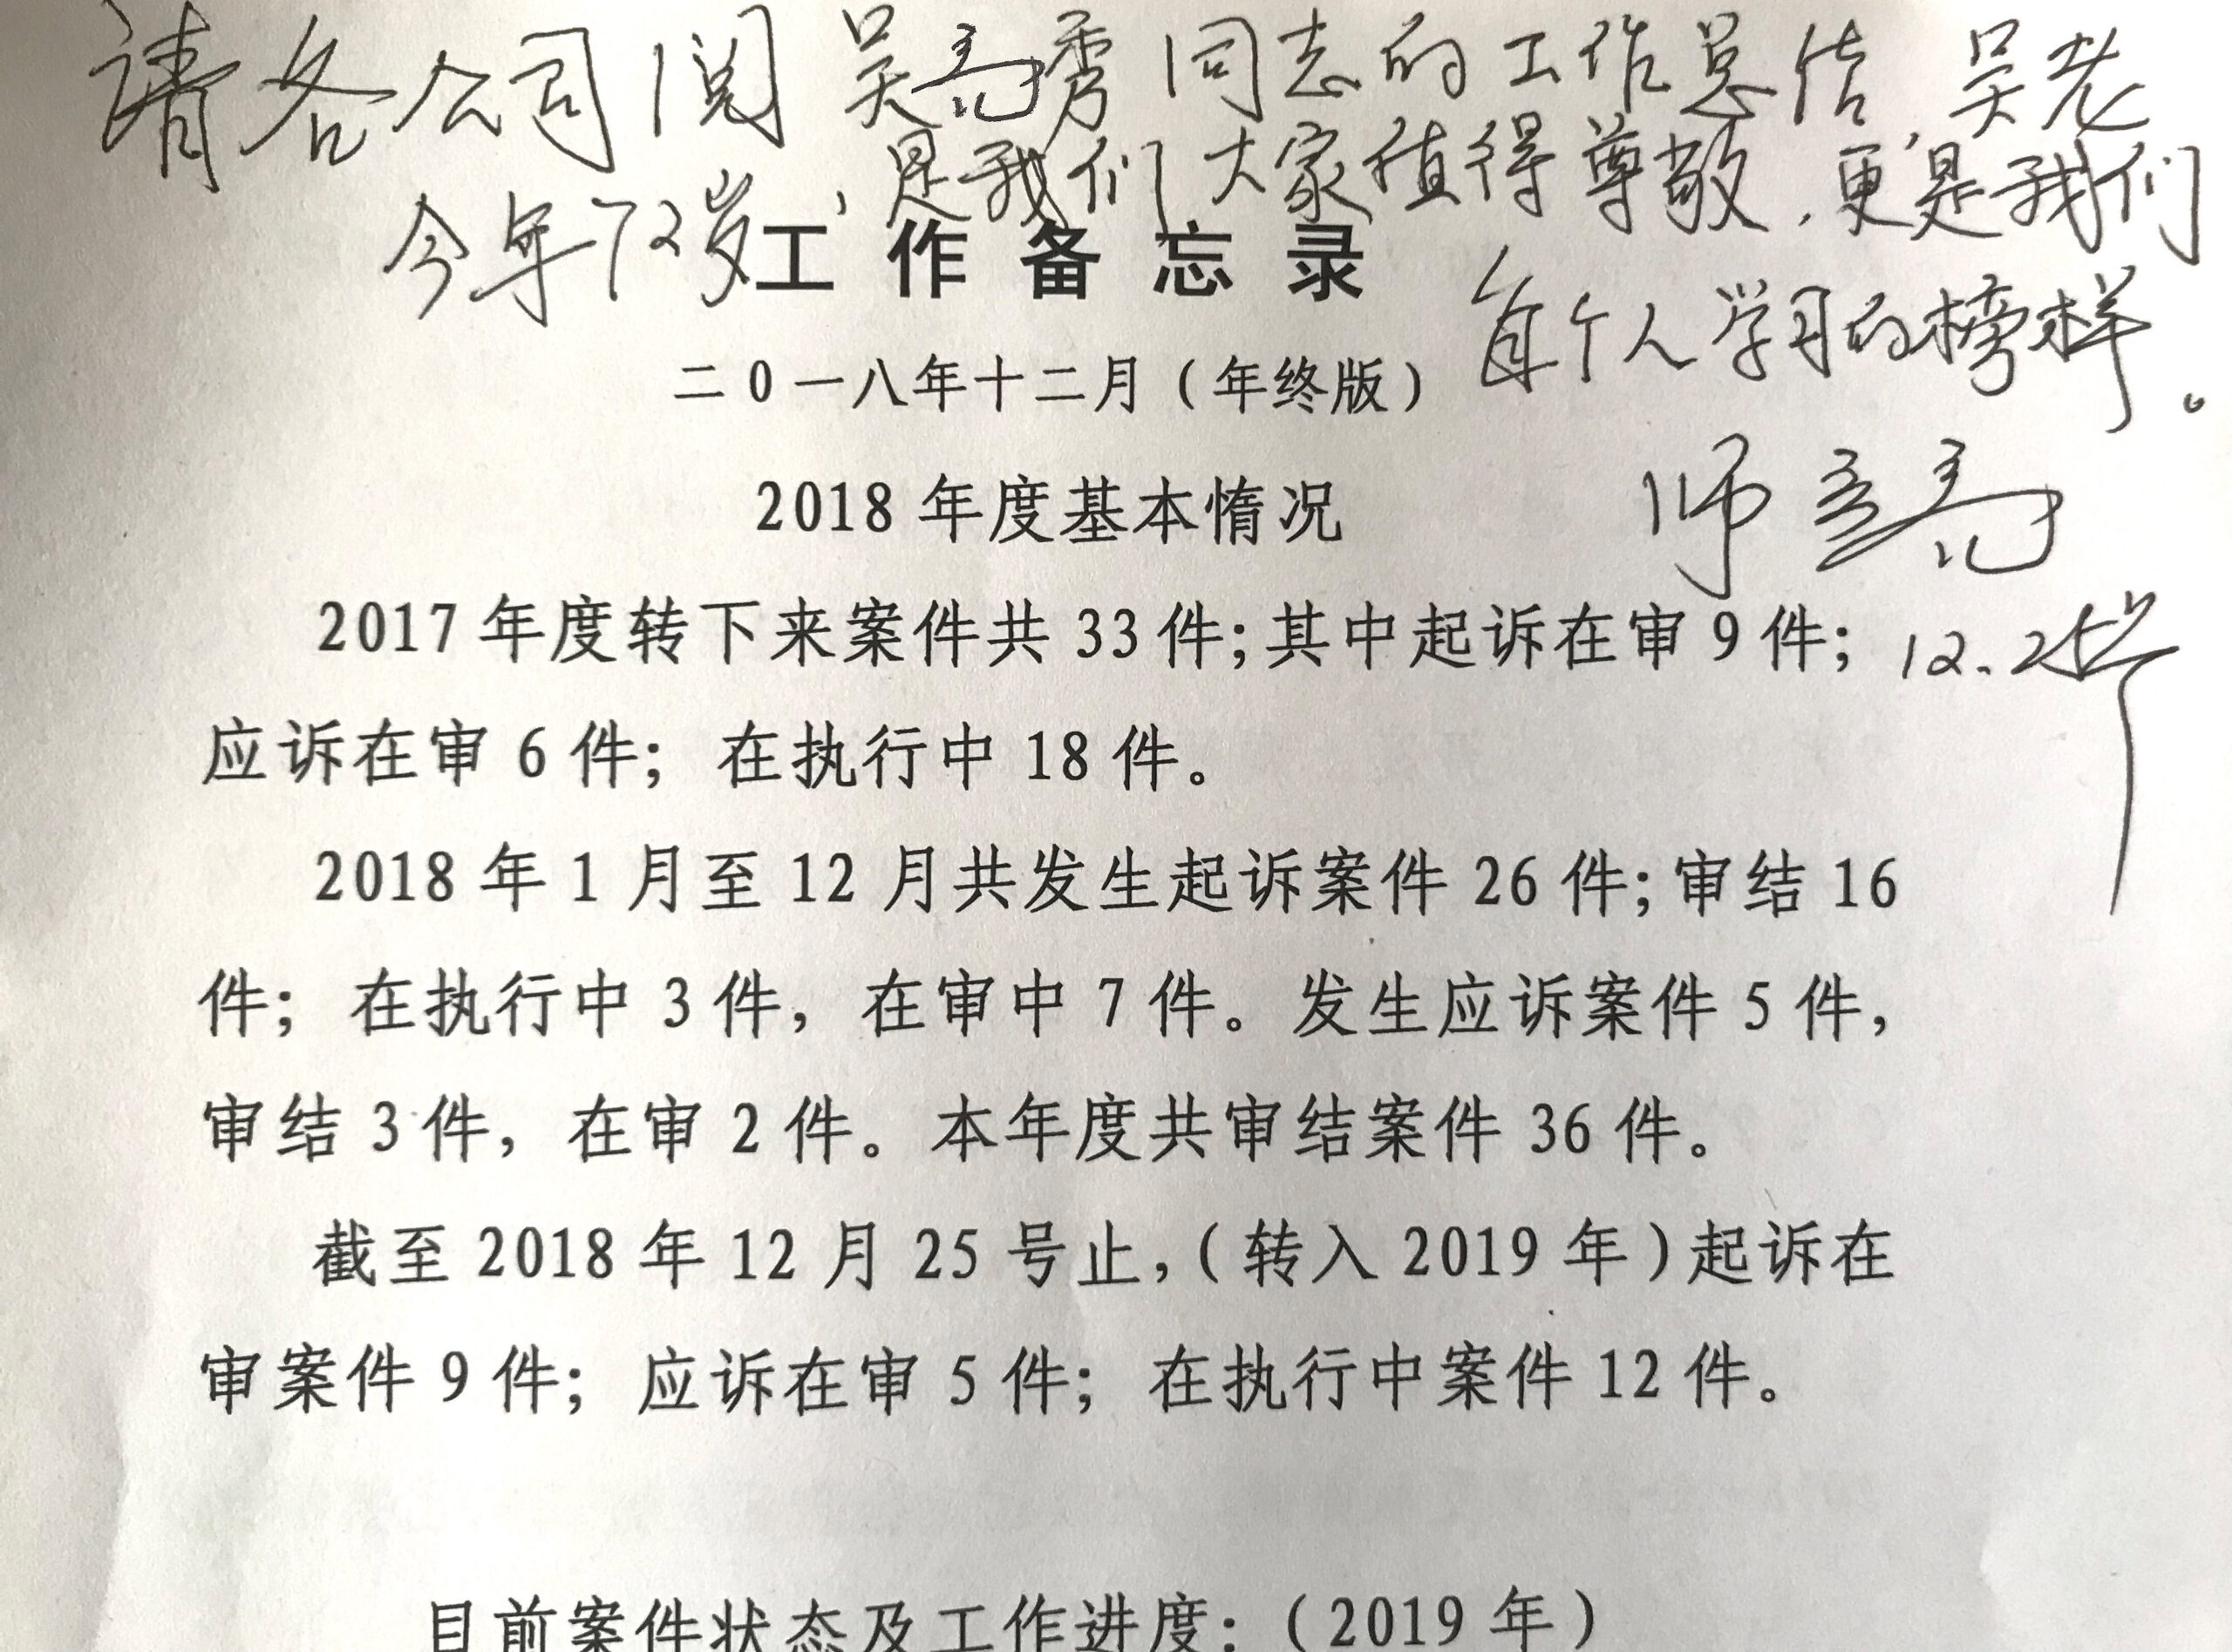 请各公司阅 吴秀同志的工作总结,吴老
今年72岁,是我们大家值得尊敬,更是我们
每个人学习的榜样。
工作备忘录
二0一八年十二月（年终版）
2018 年度基本惰况
师
2017 年度转下来案件共 33 件;其中起诉在审 9 件;
12.25
应诉在审 6 件; 在执行中 18 件。
2018 年 1 月至 12 月共发生起诉案件 26 件;审结 16
件; 在执行中 3 件, 在审中 7 件。发生应诉案件 5 件,
审结 3 件, 在审 2 件。本年度共审结案件 36 件。
截至 2018 年 12 月 25 号止,(转入 2019 年)起诉在
审案件 9 件; 应诉在审 5 件; 在执行中案件 12 件。
目前案件状态及工作进度:(2019 年)